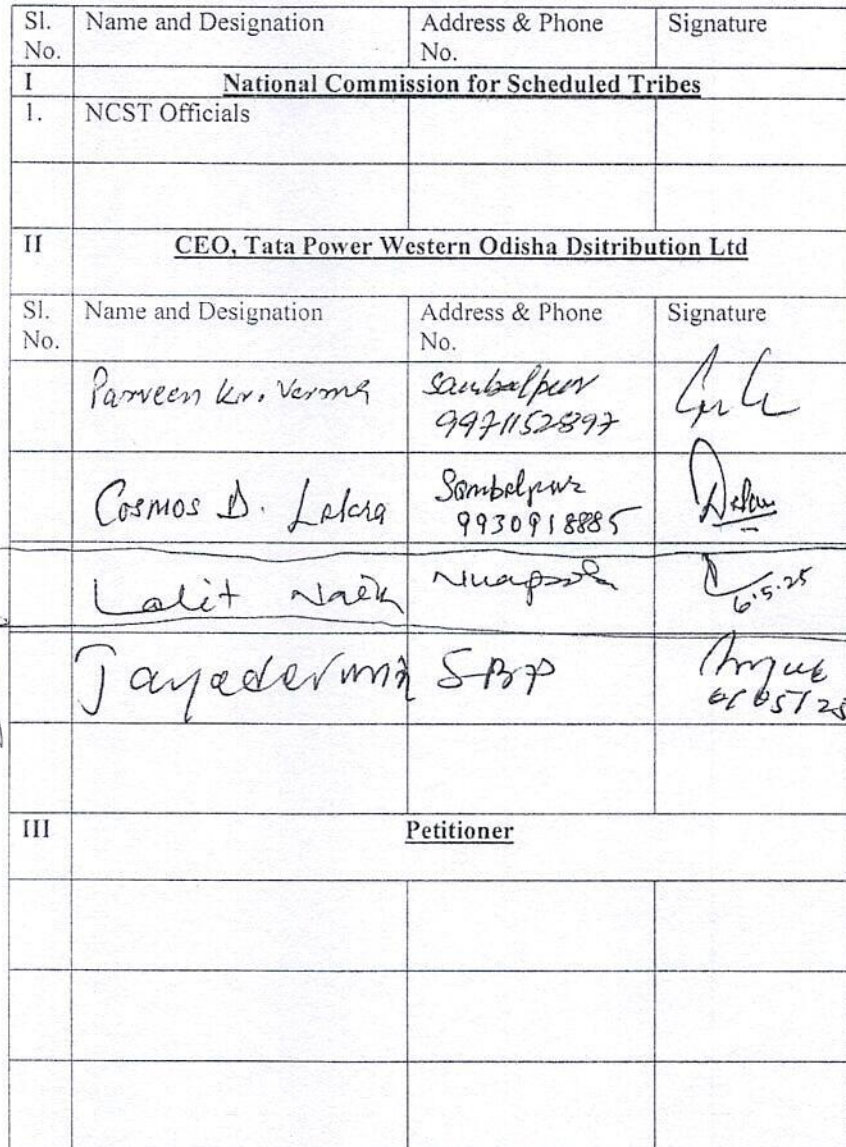 Sl. No. Name and Designation Address & Phone No. Signature
I National Commission for Scheduled Tribes
1. NCST Officials
II CEO, Tata Power Western Odisha Dsitribution Ltd
Sl. No. Name and Designation Address & Phone No. Signature
Parveen Kr. Verma Sambalpur
9971152897
Cosmos D. Lakra Sambalpur
9930918885
Lalit Naik 6.5.25
SBP
III Petitioner